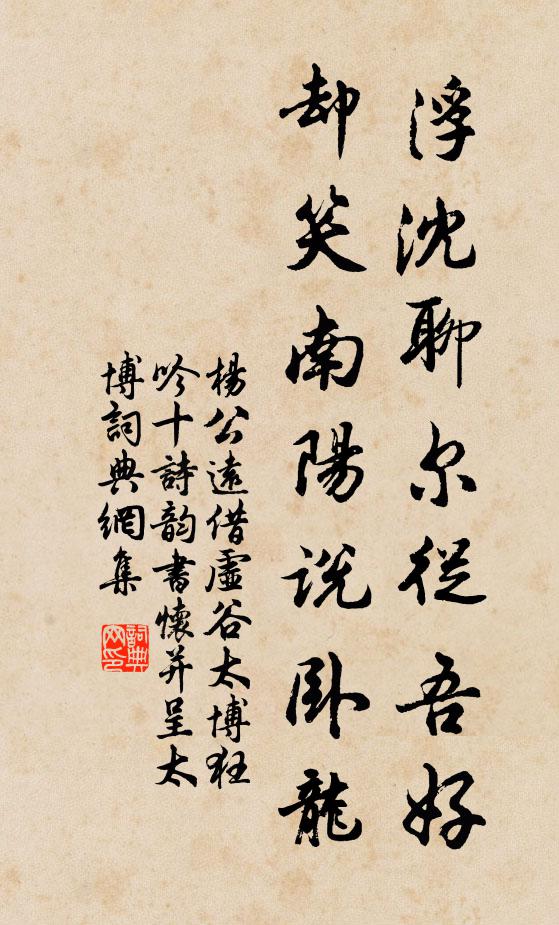 浮沈聊尔從吾好
却笑南陽説卧龍
楊公遠借虛谷太博狂
吟十詩韵書懷并呈太
博詞典網集
詞典
网印